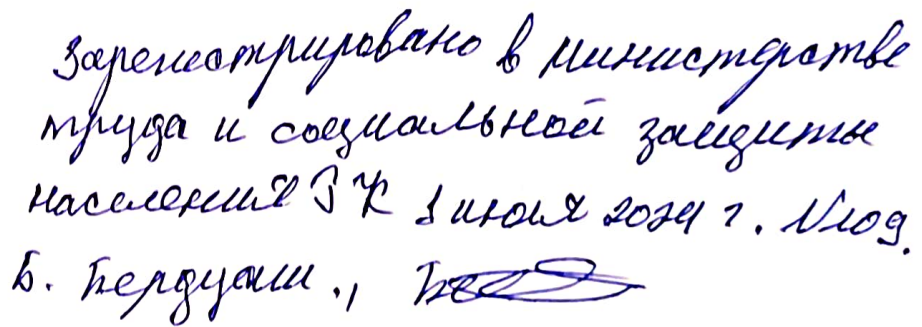 Зарегистрировано в министерстве
труда и социальной защиты
населения РК 1 июля 2024 г. №109.
Б. Бердуаш.,